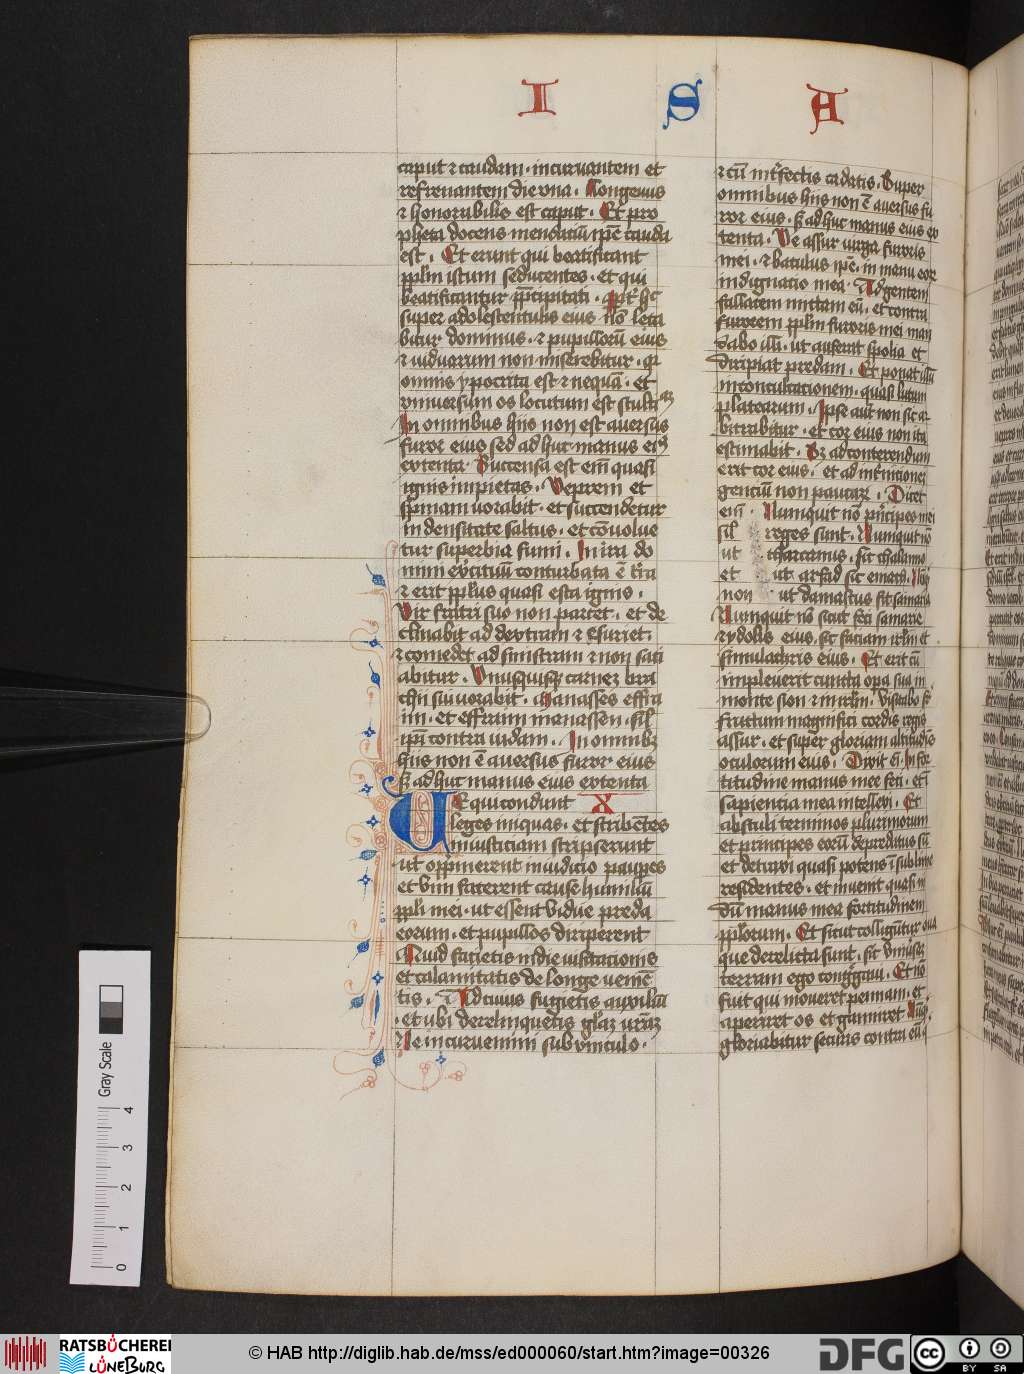 I S A
caput ⁊ caudam · incurvantem et
refrenantem die una · Longevus
⁊ honorabilis est caput · Et pro
pheta docens mendatiū ip̄e cauda
est · Et erunt qui beatificant
ppl̄m istum seducentes · et qui
beatificantur p̄cipitati · ꝓpt̄ hͨ
super adolescentulis eius nō leta
bitur dominus · ⁊ pupillorū eius
⁊ viduarum non miserebitur · qr
omnis ypocrita est ⁊ nequā · et
universum os locutum est stulti
In omnibus hiis non est aversus
furor eius sed adhuc manus eiꝰ
extenta Succensa est em̄ quasi
ignis impietas · Veprem et
spinam vorabit · et succendetur
in densitate saltus · et cōvolve
tur superbia fumi · In ira do
mini ex̄cituū conturbata ē t̄ra
⁊ erit ppl̄us quasi esca ignis ·
Vir fratri suo non parcet · et de
clinabit ad dextram ⁊ esuriet ·
⁊ comedet ad sinistram ⁊ non saci
abitur · Unusquisqꝫ carnez bra
chii sui vorabit · Manasses effra
im · et effraim manassen · sil̄
ip̄i contra iudam · In omnibꝫ
hiis non ē aversus furor eius
sꝫ adhuc manus eius extenta
UE qui condunt X
leges iniquas · et scribentes
iniusticiam scripserunt
ut opp̄merent in iudicio paupes
et vim facerent cause humiliū
ppl̄i mei · ut essent vidue preda
eorum · et pupillos diriperent
Quid facietis in die visitacionis
et calamitatis de longe venien
tis · Ad cuius fugietis auxiliū
· et ubi derelinquetis gl̄az vr̄az
Ne incurvemini sub vinculo ·
⁊ cū int̄fectis cadatis · Super
omnibus hiis non ē aversus fu
ror eius · sꝫ adhuc manus eius ex
tenta · Ve assur virga furoris
mei · ⁊ baculus ip̄e · in manu eoꝝ
indignatio mea · Ad gentem
fallacem mittam eū · et contra
furorem ppl̄m furoris mei man
dabo illi · ut auferat spolia et
diripiat predam · Et ponat illū
in conculcationem · quasi lutum
platearum · Ipse aut̄ non sic ar
bitrabitur · et cor eius non ita
estimabit · Sꝫ ad conterendum
erit cor eius · et ad int̄nitionem
gentiū non paucaꝝ · Dicet
eni · Numquit nō p̄ncipes mei
sil̄ reges sunt · Numquit nō
ut tharcamus · sic chalanno
et ut arfad sic emath ·
non ut damascus sic samaria
Numquit nō sicut feci samarie
⁊ ydolis eius · sic faciam irl̄m et
simulachris eius · Et erit cū
impleverit cuncta opa sua in
monte sion ⁊ in irl̄m · visitabo sꝑ
fructum magnifici cordis regis
assur · et super gloriam altitudīs
oculorum eius · Dixit ei · In for
titudine manus mee feci · et ī
sapientia mea intellexi · Et
abstuli terminos plurimorum
et principes eorū depredatus sū
et detraxi quasi potens ī sublime
residentes · et invenit quasi ni
dū manus mea fortitudinem
ppl̄orum · Et sicut colligūtur ova
que derelicta sunt · sic universā
terram ego congregavi · Et nō
fuit qui moveret pennam · et
aperiret os et ganniret
gloriabitur securis contra eū q
Gray Scale
0 1 2 3 4
RATSBÜCHEREI
LÜNEBURG
© HAB http://diglib.hab.de/mss/ed000060/start.htm?image=00326
DFG
cc BY SA